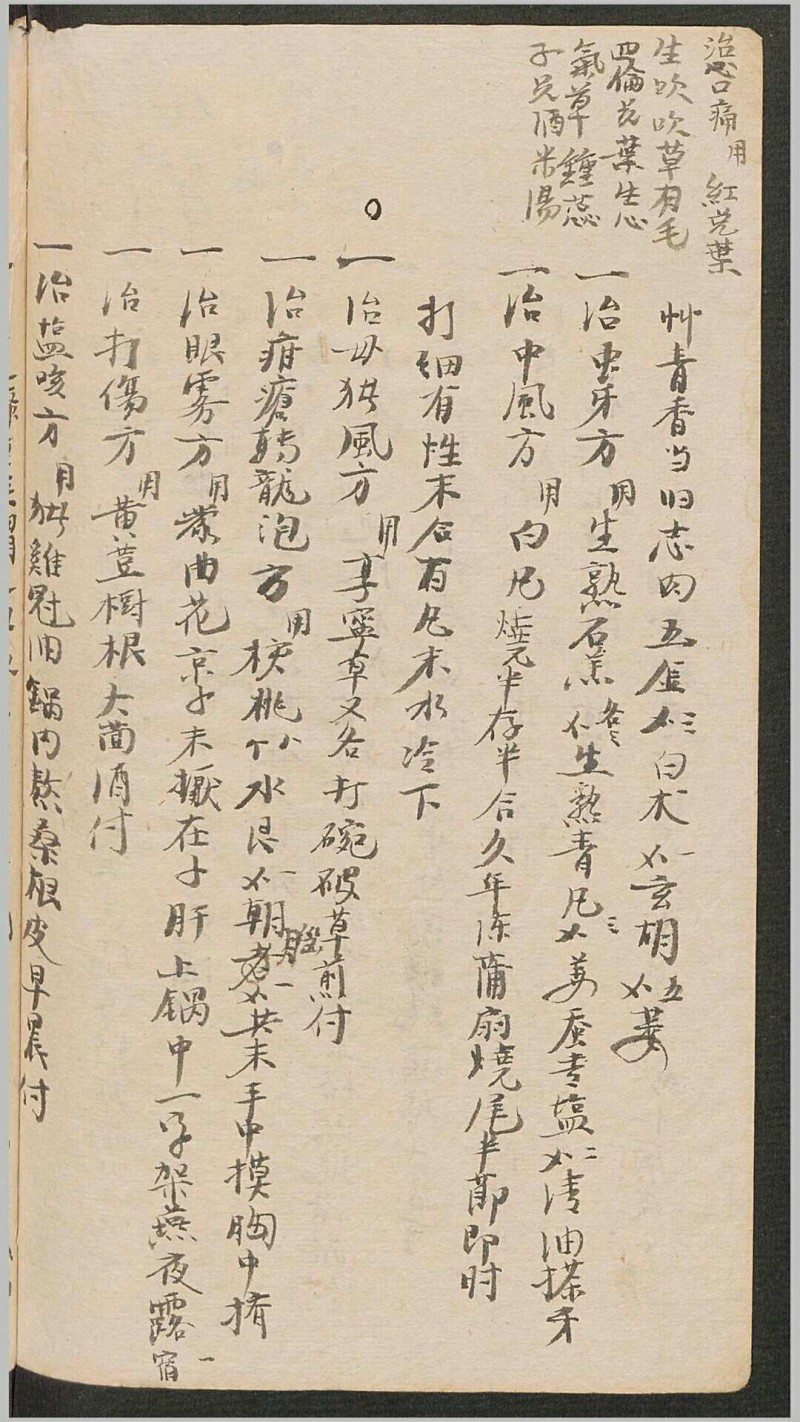 治心口痛用紅花葉
生吹吹草有毛
四倫花葉生心
氣草鍾蕊
子兄酒米湯
艸青香当归志肉五白术玄胡五姜
一治虫牙方用生熟石羔各生熟青凡三姜蚕青塩二清油搽牙
一治中風方用白凡燒半存半合久年陈蒲扇燒尾半節即时
打细有性末合有凡末水冷下
一治母猪風方用享寧草又名打碗破草煎付
一治疳瘡轉龍泡方用桃个八水艮朝脑共末手中摸胸中
一治眼雾方用蒙曲花京子末在子肝上锅中一子架蒸夜露一宿
一治打傷方用黄荳樹根大茴酒付
一治塩咳方用猪雞冠油锅内熬桑根皮早晨付